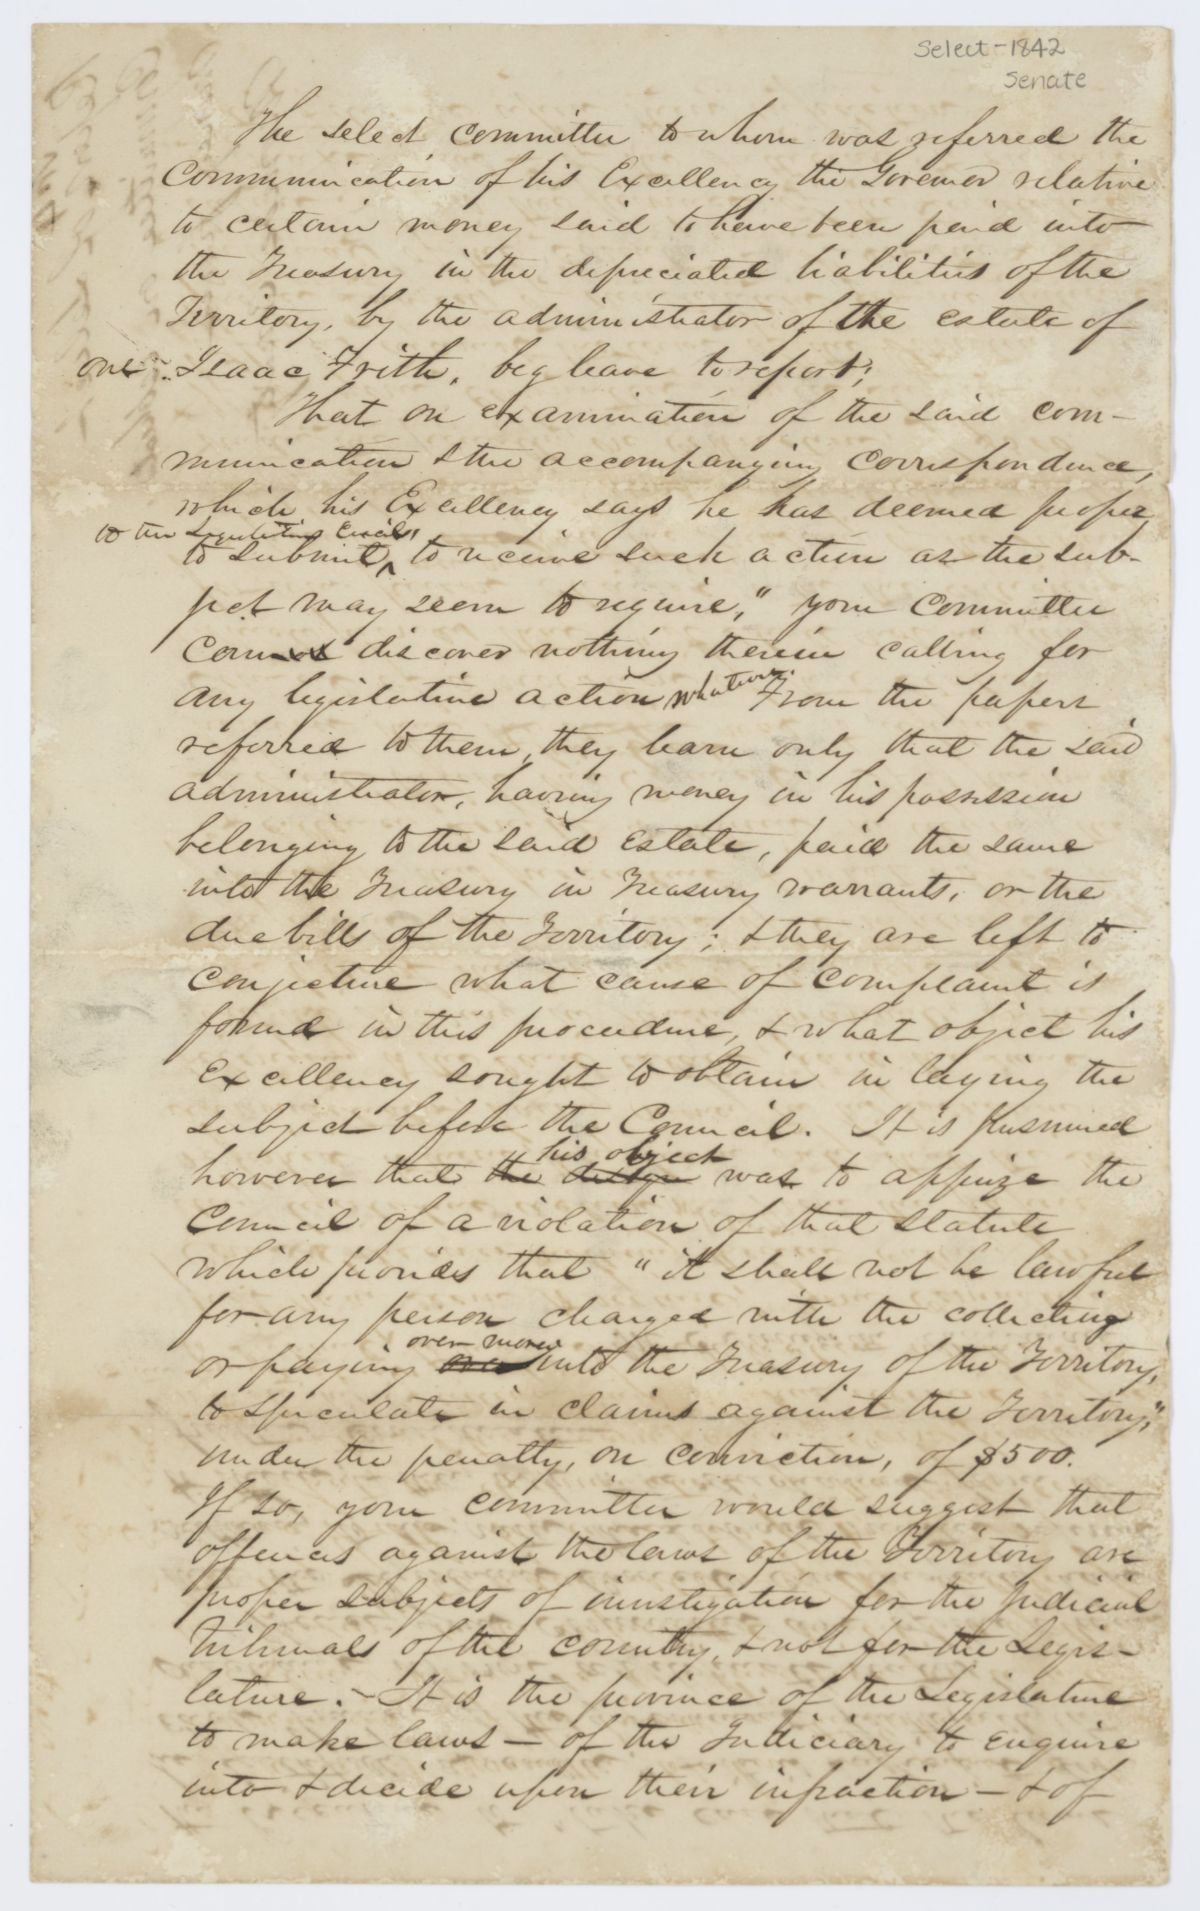 Select - 1842
Senate
The select committee to whom was referred the
Communication of his Excellency the Governor relative
to certain money said to have been paid into
the Treasury in the depreciated liabilities of the
Territory, by the administrator of the estate of
one Isaac Frith, beg leave to report;
That on examination of the said com-
munication & the accompanying correspondence,
which his Excellency says he has deemed proper
to the Legislative Council,
to submit, to receive such action as the sub-
ject may seem to require," your Committee
Cannot discover nothing therein calling for
any legislative action whatever. From the papers
referred to them, they learn only that the said
administrator, having money in his possession
belonging to the said Estate, paid the same
into the Treasury in Treasury warrants, or the
due bills of the Territory; & they are left to
conjecture what cause of complaint is
found in this procedure, & what object his
Excellency sought to obtain in laying the
subject before the Council. It is presumed
his object
however that the design was to apprize the
Council of a violation of that statute
which provides that "it shall not be lawful
for any person charged with the collecting
over money
or paying over into the Treasury of the Territory,
to speculate in claims against the Territory,"
under the penalty, on conviction, of $500.
If so, your committee would suggest that
offences against the laws of the Territory are
proper subjects of investigation for the judicial
tribunals of the country, & not for the Legis-
lature. - It is the province of the Legislature
to make laws — of the Judiciary to enquire
into & decide upon their infraction — & of